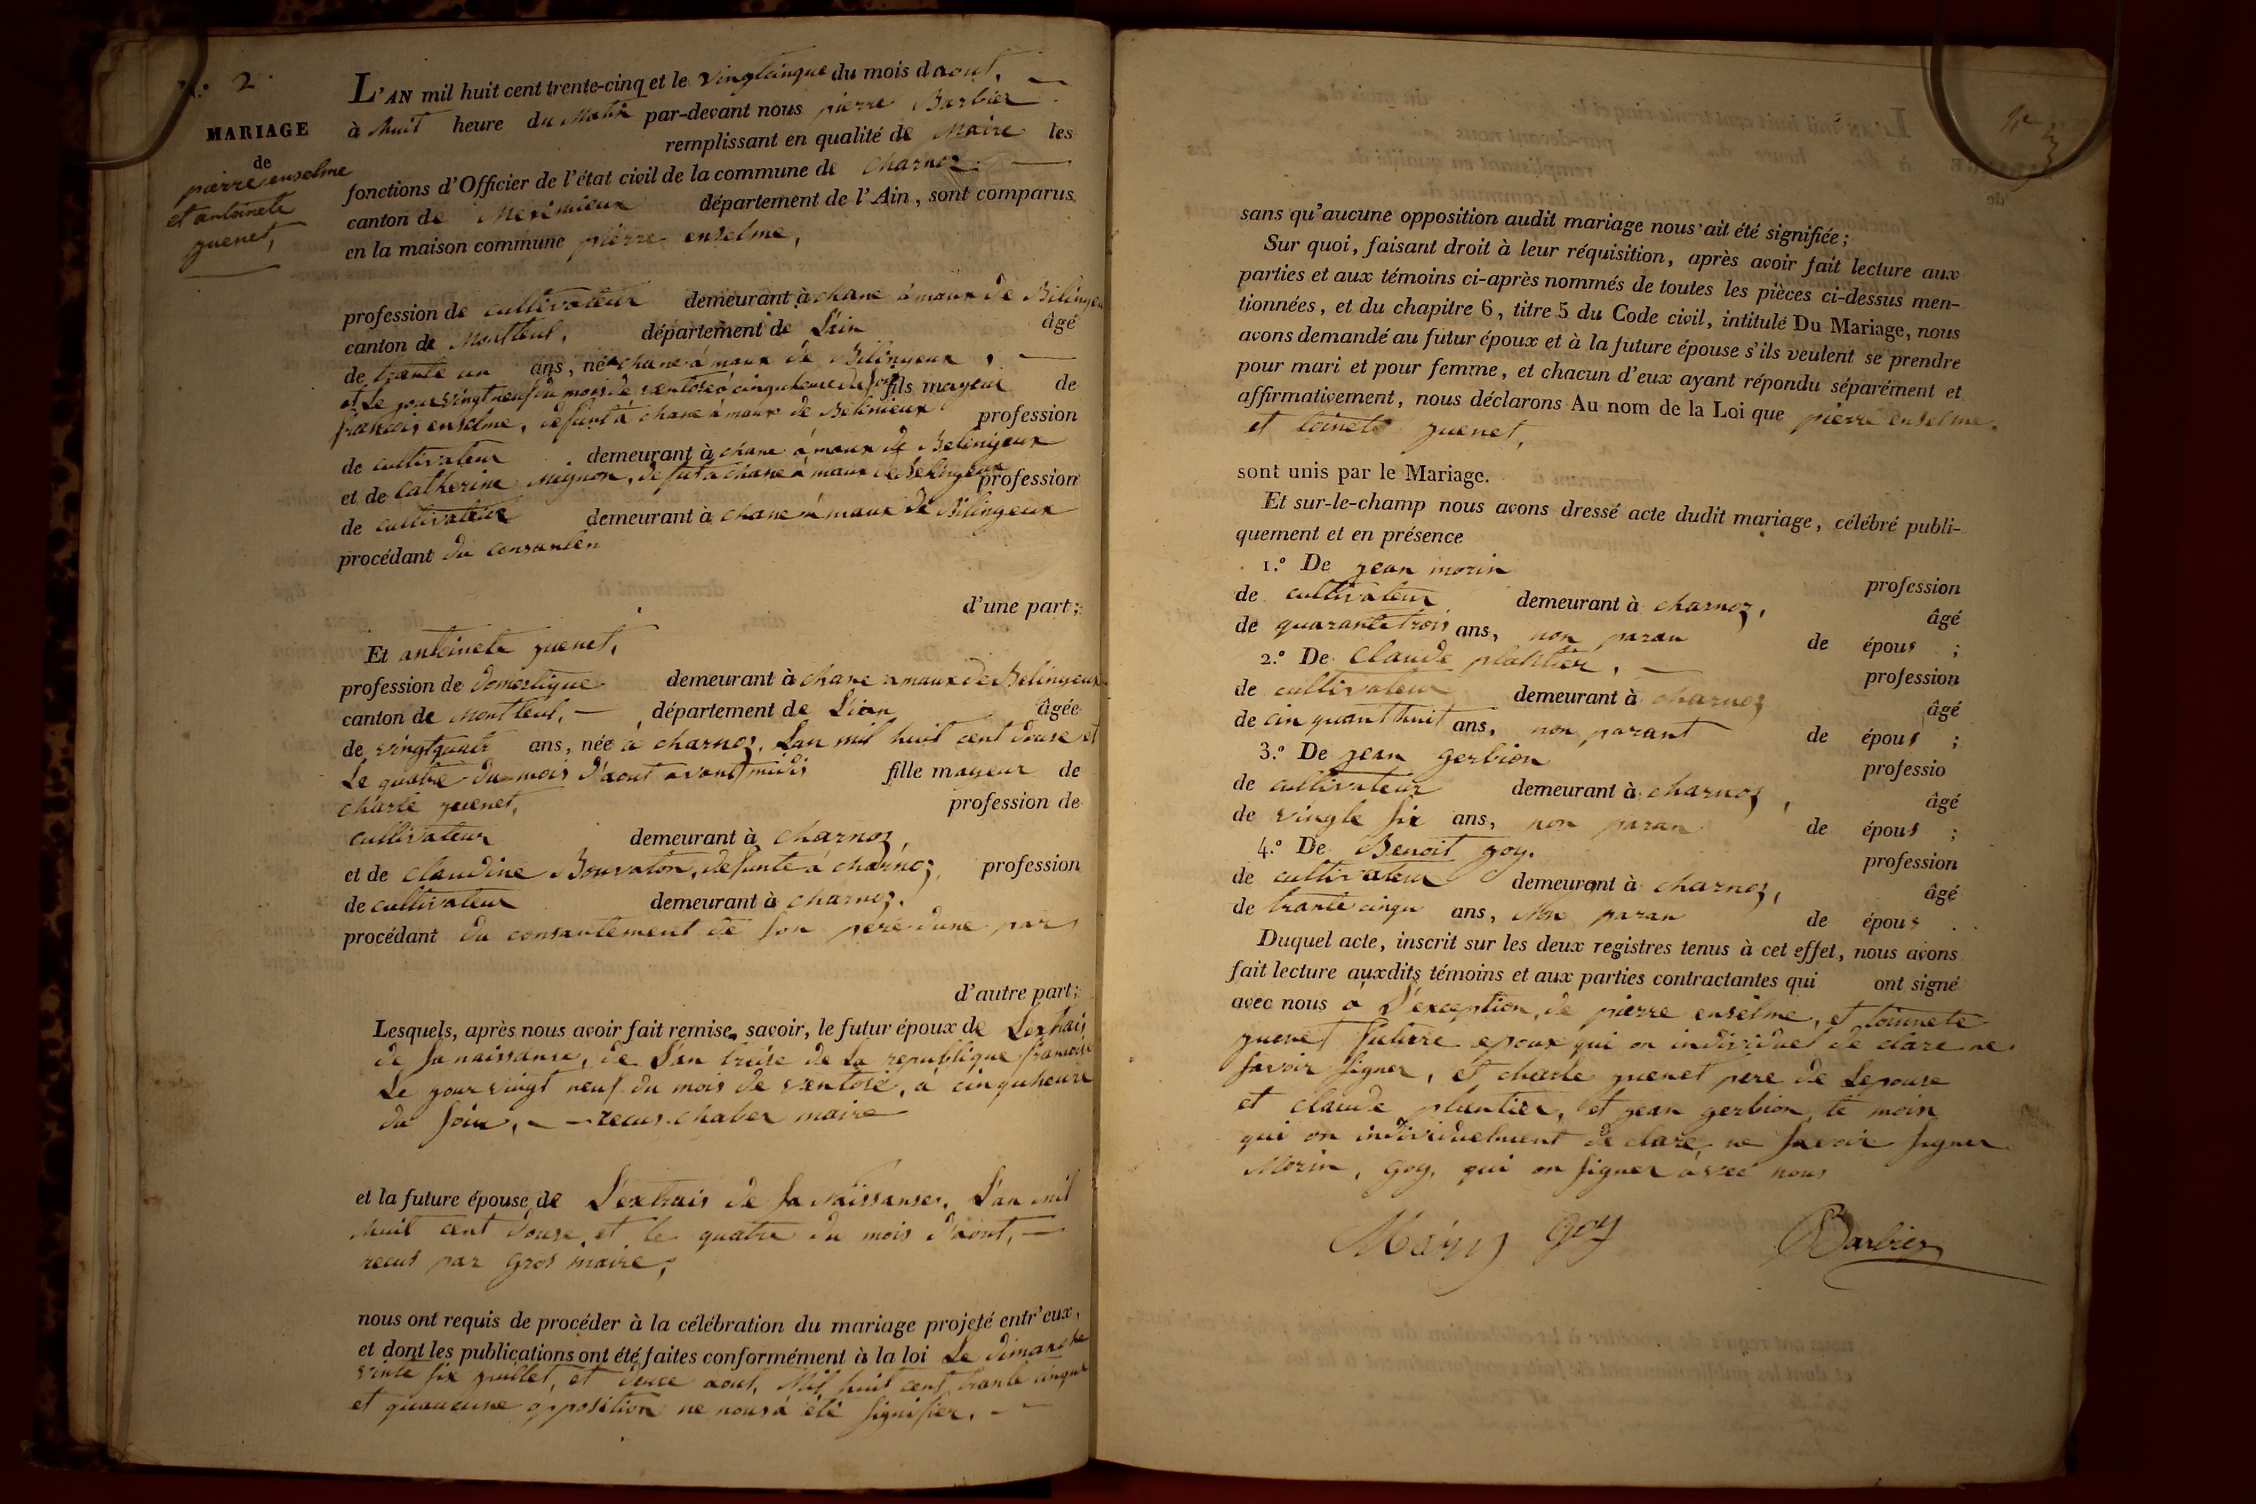 N.º 2.
MARIAGE
de
pierre enselme
et antoinete
guenet,
L'AN mil huit cent trente-cinq et le vingtcinque du mois daout,
à huit heure du Matin par-devant nous pierre Barbier
remplissant en qualité de Maire les
fonctions d'Officier de l'état civil de la commune de charnoz
canton de Meximieux département de l'Ain, sont comparus
en la maison commune pierre enselme,
profession de cultivateur demeurant à chane à maux de Bilinyeu
canton de Montluel, département de L'ain âgé
de trente un ans, né chane à maux de Bilinyeux,
et Le jour vingt neuf du mois de ventose à cinqu heure du soir fils mayeur de
francois enselme, defunt à chane à maux de Belinieux profession
de cultivateur demeurant à chane à maux de Belinyeux
et de Catherine Mignon, defut à chane à maux de Belinyeux profession
de cultivateur demeurant à chane à maux de Bilingeux
procédant du consanten
d'une part;
Et antoinete guenet,
profession de domestique demeurant à chane amaux de Belinyeux
canton de Montluel, département de Liain âgée
de vingtquatr ans, née à charnoz, Lan mil huit cent douse et
Le quatre du mois d'aout avant midis fille mayeur de
charle guenet, profession de
cultivateur demeurant à charnoz,
et de claudine Bouvaton, defunte à charnoz, profession
de cultivateur demeurant à charnoz,
procédant du consantement de son pere dune par
d'autre part;
Lesquels, après nous avoir fait remise, savoir, le futur époux de Lextrais
de sa naissanse, de L'an treise de la republique francoise
Le jour vingt neuf du mois de ventose, à cinquheure
du soir, recus chaber maire
et la future épouse de L'extrais de sa Naissanse, L'an mil
huit cent douse, et le quatre du mois d'aout,
recus par gros maire,
nous ont requis de procéder à la célébration du mariage projeté entr'eux,
et dont les publications ont été faites conformément à la loi Le dimanche
vinte six juillet, et deuxe aout, Mil huit cent trante cinque
et quaucune opposition ne nous à été signifier.
sans qu'aucune opposition audit mariage nous ait été signifiée;
Sur quoi, faisant droit à leur réquisition, après avoir fait lecture aux
parties et aux témoins ci-après nommés de toutes les pièces ci-dessus men-
tionnées, et du chapitre 6, titre 5 du Code civil, intitulé Du Mariage, nous
avons demandé au futur époux et à la future épouse s'ils veulent se prendre
pour mari et pour femme, et chacun d'eux ayant répondu séparément et
affirmativement, nous déclarons Au nom de la Loi que pierre enselme.
et toinete guenet,
sont unis par le Mariage.
Et sur-le-champ nous avons dressé acte dudit mariage, célébré publi-
quement et en présence
1.º De jean morin profession
de cultivateur demeurant à charnoz, âgé
de quarante trois ans, non paran de épous ;
2.º De Claude plantier, profession
de cultivateur demeurant à charnoz âgé
de cinquant huit ans, non parant de épous ;
3.º De jean gerbion professio
de cultivateur demeurant à charnoz, âgé
de vingte six ans, non paran de épous ;
4.º De Benoit goy, profession
de cultivateur demeurant à charnoz, âgé
de trante cinqu ans, Non paran de épous .
Duquel acte, inscrit sur les deux registres tenus à cet effet, nous avons
fait lecture auxdits témoins et aux parties contractantes qui ont signé
avec nous à L'exception, de pierre enselme, et toinnete
guenet future epoux qui on individuel de clare ne
savoir signer, et charle guenet pere de Lepouse
et claude plantier, et jean gerbion te moin
qui on individuelment de clare ne savoir signer
Morin, goy, qui on signer avec nous
Morin goy Barbier